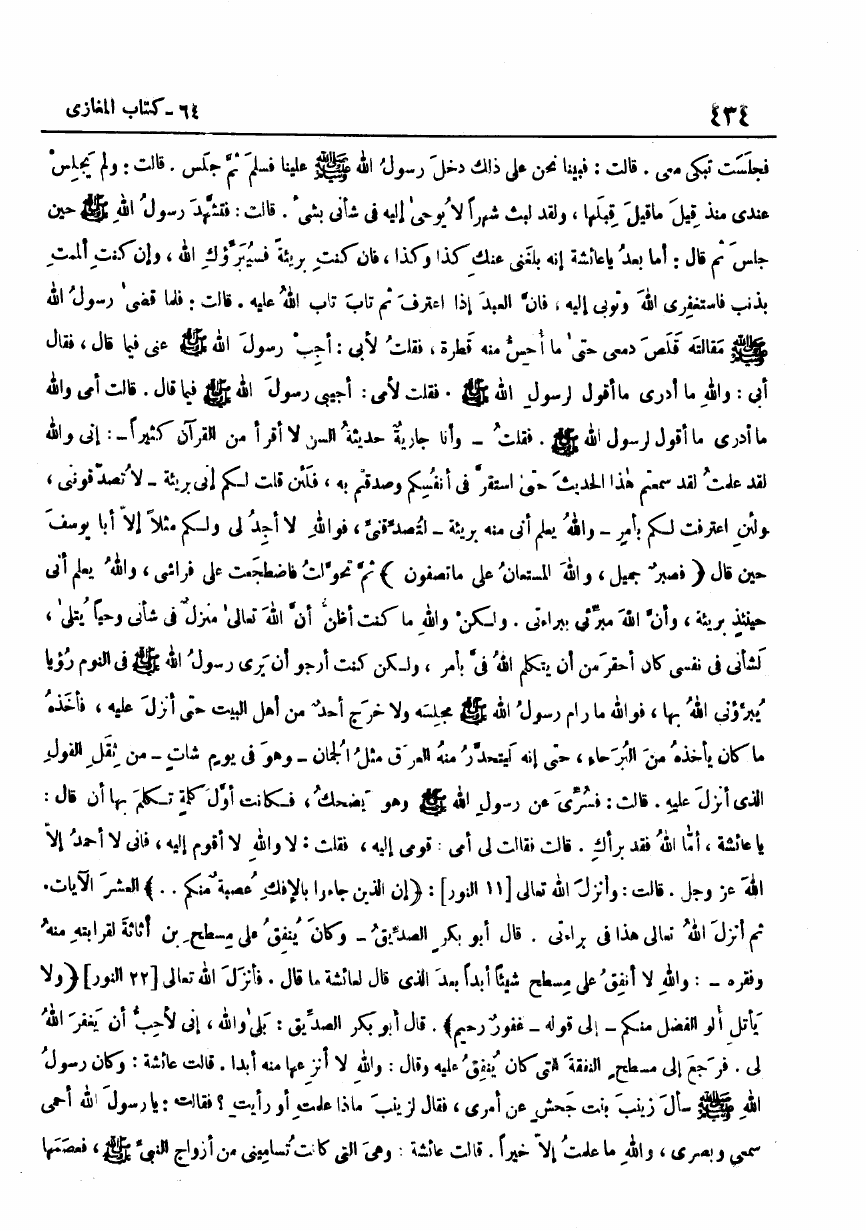 ٤٣٤
٦٤ - كتاب المغازى
فجلَسَت تبكى معى . قالت : فبينا نحن على ذلك دخلَ رسولُ الله ﷺ علينا فسلم ثمَّ جلَس . قالت : ولم يَجلِسْ
عندى منذ قِيلَ ماقيلَ قبلَها ، ولقد لبث شهراً لا يُوحىٰ إليه فى شأنى بشىْ . قالت : فتشَّهدَ رسولُ اللهِ ﷺ حين
جلسَ ثم قال : أما بعدُ ياعائشة إنه بلغَنى عنكِ كذا وكذا ، فان كنتِ بريئةً فسيُبَرِّؤُكِ الله ، وإن كنتِ ألممتِ
بذنب فاستغفِرى اللهَ وتوبى إليه ، فانَّ العبدَ إذا اعترفَ ثم تابَ تاب اللهُ عليه . قالت : فلما قضىٰ رسولُ الله
ﷺ مَقالتَه قَلَصَ دمعى حتىٰ ما أُحِسُّ منه قطرة ، فقلتُ لأبى : أجِبْ رسولَ الله ﷺ عنى فيما قال ، فقال
أبى : واللهِ ما أدرى ماأقول لرسولِ الله ﷺ . فقلت لأمى : أجيبى رسولَ الله ﷺ فيما قال . قالت أمى والله
ما أدرى ما أقول لرسول الله ﷺ . فقلتُ ـ وأنا جاريةٌ حديثةُ السن لا أقرأ من القرآن كثيراً ـ : إنى والله
لقد علمتُ لقد سمعتم هٰذا الحديثَ حتىٰ استقرَّ فى أنفُسِكم وصدقتم به ، فلَئن قلت لكم إنى بريئة ـ لا تُصدِّقونى ،
ولئنِ اعترفت لكم بأمرٍ ـ واللهُ يعلم أنى منه بريئة ـ لتُصدِّقنِّى ، فواللهِ لا أجِدُ لى ولكم مثلاً إلاّ أبا يوسفَ
حين قال ﴿ فصبرٌ جميل ، واللهُ المستعانُ على ماتصفون ﴾ ثمَّ تحوَّلتُ فاضطجَعت على فراشى ، واللهُ يعلم أنى
حينئذٍ بريئة ، وأنَّ اللهَ مبرِّئى ببراءتى . ولكنْ واللهِ ما كنت أظنُّ أنَّ اللهَ تعالىٰ منزلٌ فى شأنى وحياً يُتلىٰ ،
لَشأنى فى نفسى كان أحقرَ من أن يتكلم اللهُ فىَّ بأمر ، ولكن كنت أرجو أن يَرى رسولُ الله ﷺ فى النوم رُؤيا
يُبرِّؤنى اللهُ بها ، فوالله ما رام رسولُ الله ﷺ مجلِسَه ولا خرَج أحدٌ من أهل البيت حتى أنزلَ عليه ، فأخَذهُ
ما كان يأخذهُ منَ البُرَحاء ، حتى إنه لَيتحدَّرُ منهُ العرَق مثلُ الُجمان ـ وهوَ فى يومٍ شاتٍ ـ من ثِقَلِ القولِ
الذى أنزلَ عليهِ . قالت : فسُرِّىَ عن رسولِ الله ﷺ وهو يَضحكُ ، فكانت أوَّلَ كلمةٍ تكلمَ بها أن قال :
يا عائشة ، أمّا اللهُ فقد برأكِ . قالت فقالت لى أمى : قومى إليه ، فقلت : لا واللهِ لا أقوم إليه ، فانى لا أحمدُ إلاّ
اللهَ عز وجل . قالت : وأنزلَ الله تعالى [ ١١ النور ] : ﴿ إن الذين جاءوا بالإفكِ عُصبةٌ منكم . . ﴾ العشرَ الآيات.
ثم أنزلَ اللهُ تعالى هذا فى براءتى . قال أبو بكرٍ الصدِّيقُ ـ وكانَ يُنفِقُ على مِسطحِ بن أثاثةَ لقرابتهِ منهُ
وفقره ـ : واللهِ لا أنفِقُ على مِسطح شيئاً أبداً بعدَ الذى قال لعائشة ما قال . فأنزَلَ الله تعالى [ ٢٢ النور ] ﴿ ولا
يَأتلِ أُلو الفضل منكم ـ إلى قوله ـ غفورٌ رحيم ﴾ . قال أبو بكر الصدِّيق : بَلىٰ والله ، إنى لأحِبُّ أن يَغفرَ اللهُ
لى . فرَجعَ إلى مسطحٍ النفقةَ التى كان يُنفِقُ عليه وقال : واللهِ لا أنزِعها منه أبدا . قالت عائشة : وكان رسولُ
اللهِ ﷺ سألَ زينبَ بنت جَحشٍ عن أمرى ، فقال لزينبَ ماذا علمتِ أو رأيتِ ؟ فقالت : يا رسولَ الله أحمى
سمعى وبصرى ، واللهِ ما علمتُ إلاّ خيراً . قالت عائشة : وهىَ التى كانت تُسامِينى من أزواج النبىِّ ﷺ ، فعصَمَها